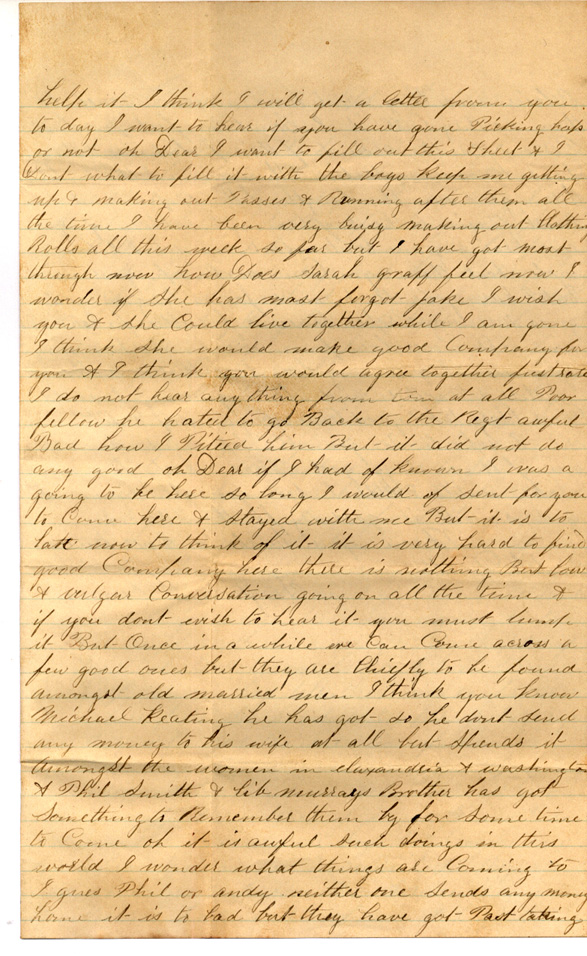 help it I think I will get a letter from you
to day I want to hear if you have gone Picking hops
or not oh Dear I want to fill out this Sheet & I
Dont what to fill it with the boys keep me getting
up & making out Passes & Running after them all
the time I have been very buisy making out Clothing
Rolls all this week so far but I have got most
through now how Does Sarah graff feel now I
wonder if She has mast forgot jake I wish
you & she Could live together while I am gone
I think she would make good Company for
you & I think you would agree together fustrate
I do not hear anything from him at all Poor
fellow he hated to go Back to the Regt awful
Bad how I Piteed him But it did not do
any good oh Dear if I had of known I was a
going to be here so long I would of sent for you
to Come here & Stayed with me But it is to
late now to think of it it is very hard to find
good Company here there is nothing But low
& vulgar Conversation going on all the time &
if you dont wish to hear it you must lump
it But Once in a while we Can Come across a
few good ones but they are thiefly to be found
amongst old married men I think you know
Michael Keating he has got so he dont send
any money to his wife at all but Spends it
Amongst the women in elaxandria & washington
& Phil Smith & lib murrays Brother has got
Something to Remember them by for some time
to Come oh it is awful such doings in this
world I wonder what things are Coming to
I gues Phil or andy neither one Sends any money
home it is to bad but they have got Past taking